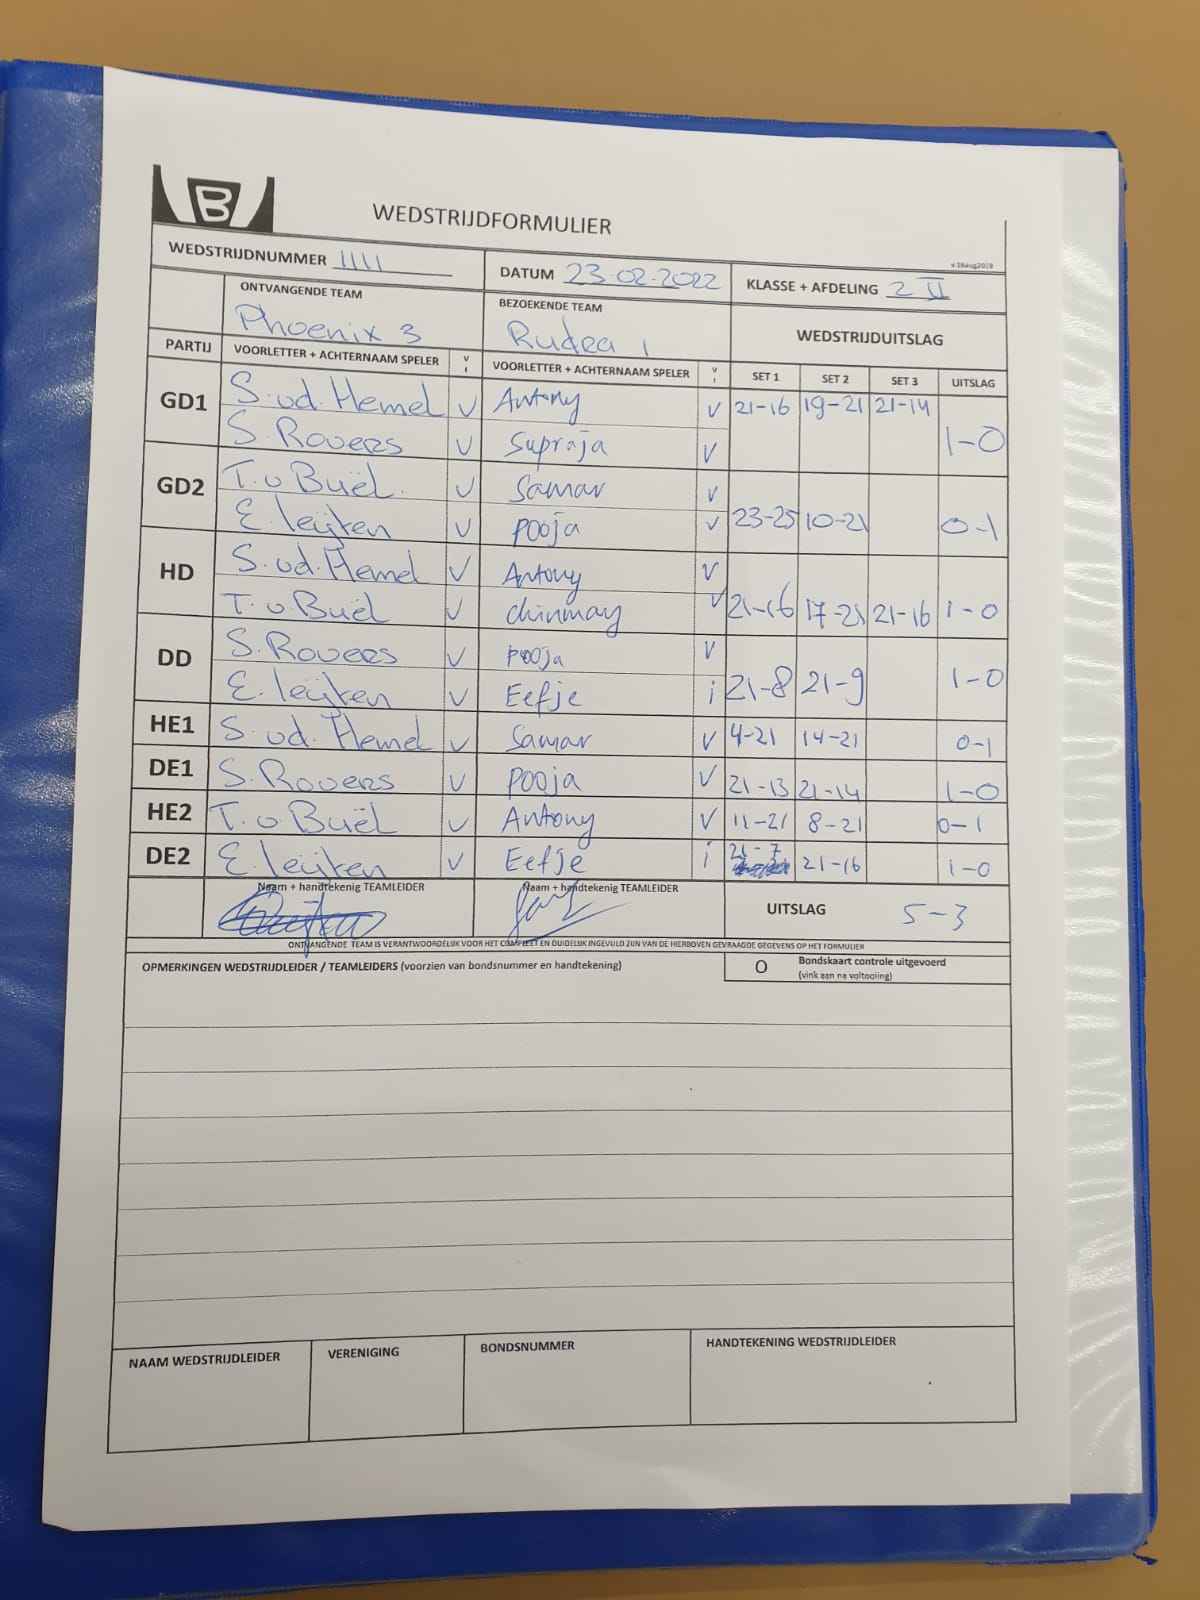 B
WEDSTRIJDFORMULIER
v.16aug2019
WEDSTRIJDNUMMER 1111 DATUM 23-02-2022 KLASSE + AFDELING 2 II
ONTVANGENDE TEAM BEZOEKENDE TEAM WEDSTRIJDUITSLAG
Phoenix 3 Rudea 1
PARTIJ VOORLETTER + ACHTERNAAM SPELER V I VOORLETTER + ACHTERNAAM SPELER V I SET 1 SET 2 SET 3 UITSLAG
GD1 S. vd. Hemel V Antony V 21-16 19-21 21-14 1-0
S. Rovers V Supraja V
GD2 T. v Buël. V Samar V 23-25 10-21 0-1
E. leijten V pooja V
HD S. vd. Hemel V Antony V 21-16 17-21 21-16 1-0
T. v Buël V chinmay V
DD S. Rovers V pooja V 21-8 21-9 1-0
E. leijten V Eefje i
HE1 S. vd. Hemel V Samar V 4-21 14-21 0-1
DE1 S. Rovers V pooja V 21-13 21-14 1-0
HE2 T. v Buël V Antony V 11-21 8-21 0-1
DE2 E. leijten V Eefje i 21-7 21-16 1-0
Naam + handtekenig TEAMLEIDER Naam + handtekenig TEAMLEIDER UITSLAG 5-3
ONTVANGENDE TEAM IS VERANTWOORDELIJK VOOR HET COMPLEET EN DUIDELIJK INGEVULD ZIJN VAN DE HIERBOVEN GEVRAAGDE GEGEVENS OP HET FORMULIER
OPMERKINGEN WEDSTRIJDLEIDER / TEAMLEIDERS (voorzien van bondsnummer en handtekening) O Bondskaart controle uitgevoerd
(vink aan na voltooiing)
NAAM WEDSTRIJDLEIDER VERENIGING BONDSNUMMER HANDTEKENING WEDSTRIJDLEIDER